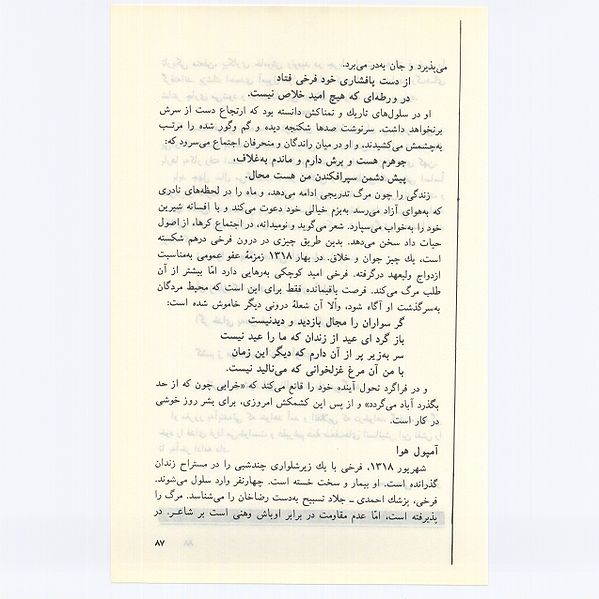 می‌پذیرد و جان به‌در می‌برد.
از دست پافشاری خود فرخی فتاد
در ورطه‌ای که هیچ امید خلاص نیست.
او در سلول‌های تاریك و نمناکش دانسته بود که ارتجاع دست از سرش
برنخواهد داشت. سرنوشت صدها شکنجه دیده و گم وگور شده را مرتب
به‌چشمش می‌کشیدند، و او در میان راندگان و منحرفان اجتماع می‌سرود که:
جوهرم هست و برش دارم و ماندم به‌غلاف،
پیش دشمن سپرافکندن من هست محال.
زندگی را چون مرگ تدریجی ادامه می‌دهد، و ماه را در لحظه‌های نادری
که به‌هوای آزاد می‌رسد به‌بزم خیالی خود دعوت می‌کند و با افسانه شیرین
خود را به‌خواب می‌سپارد. شعر می‌گوید و نومیدانه، در اجتماع کرها، از اصول
حیات داد سخن می‌دهد. بدین طریق چیزی در درون فرخی درهم شکسته
است، یك چیز جوان و خلاق. در بهار ۱۳۱۸ زمزمهٔ عفو عمومی به‌مناسبت
ازدواج ولیعهد درگرفته. فرخی امید کوچکی به‌رهایی دارد امّا بیشتر از آن
طلب مرگ می‌کند. فرصت باقیمانده فقط برای این است که محیط مردگان
به‌سرگذشت او آگاه شود، والّا آن شعلهٔ درونی دیگر خاموش شده است:
گر سواران را مجال بازدید و دیدنیست
باز گرد ای عید از زندان که ما را عید نیست
سر به‌زیر پر از آن دارم که دیگر این زمان
با من آن مرغ غزلخوانی که می‌نالید نیست.
و در فراگرد تحول آینده خود را قانع می‌کند که «خرابی چون که از حد
بگذرد آباد می‌گردد» و از پس این کشمکش امروزی، برای بشر روز خوشی
در کار است.
آمپول هوا
شهریور ۱۳۱۸، فرخی با یك زیرشلواری چندشبی را در مستراح زندان
گذرانده است. او بیمار و سخت خسته است. چهارنفر وارد سلول می‌شوند.
فرخی، پزشك احمدی ــ جلاد تسبیح به‌دست رضاخان را می‌شناسد. مرگ را
پذیرفته است، امّا عدم مقاومت در برابر اوباش وهنی است بر شاعر. در
۸۷